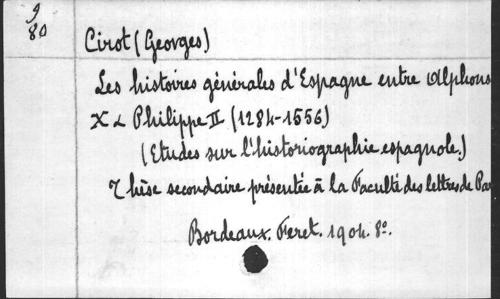 9
80
Cirot (Georges)
Les histoires générales d'Espagne entre Alphons
X & Philippe II (1284-1556)
(Etudes sur l'historiographie espagnole.)
Thèse secondaire présentée à la Faculté des lettres de Par
Bordeaux. Feret. 1904. 8º.